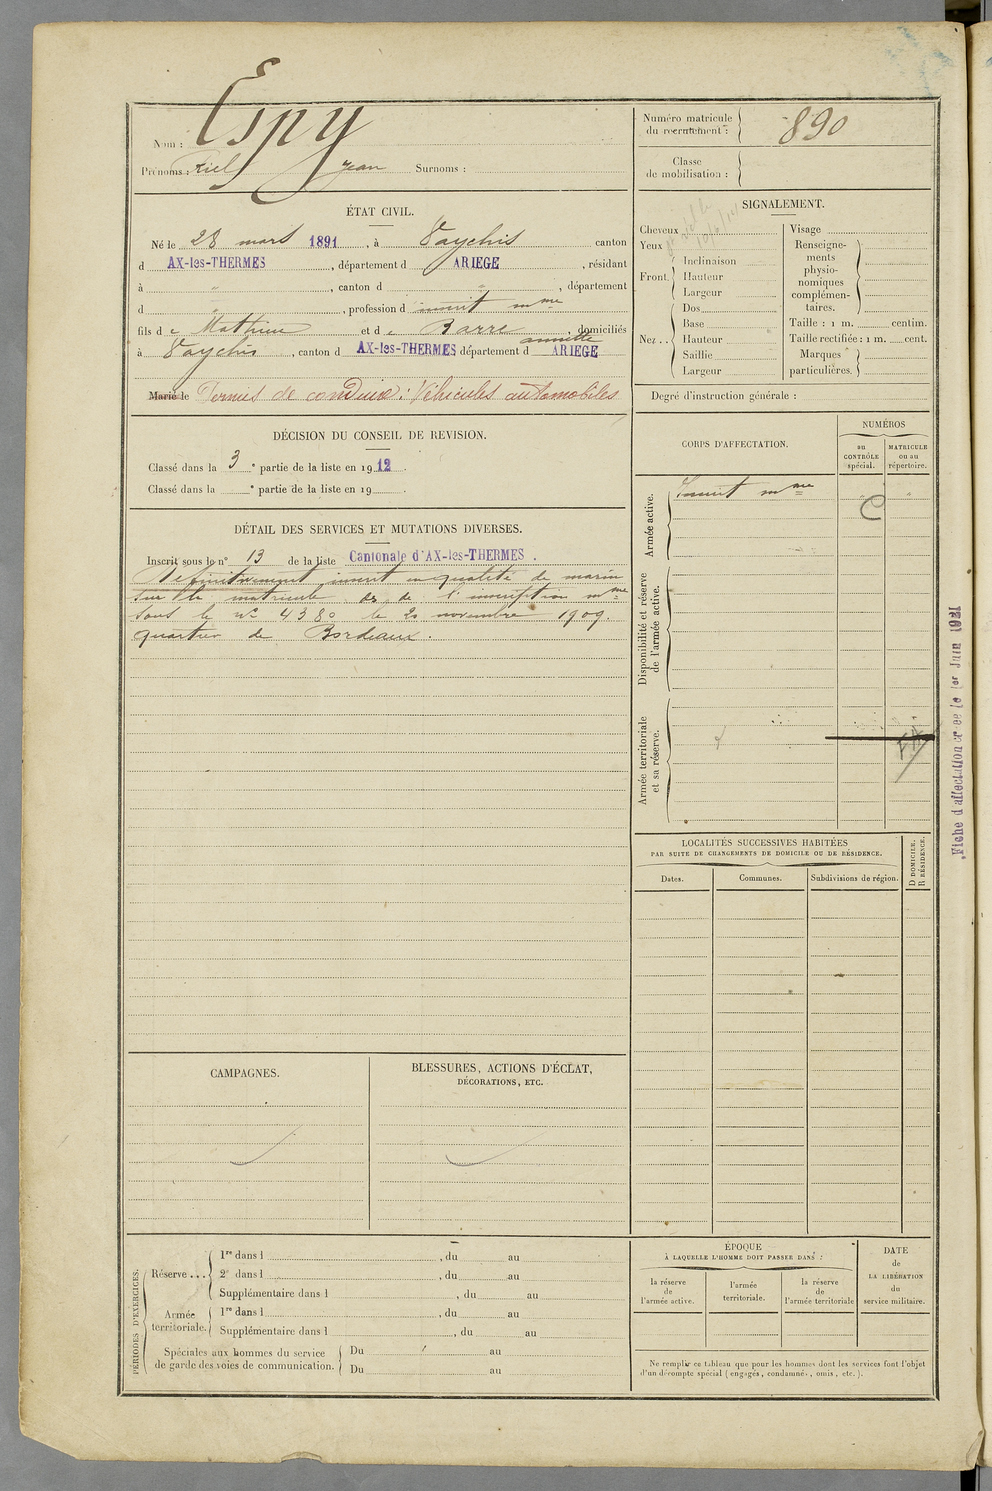 Nom : Espy
Prénoms : Riel Jean Surnoms :
ÉTAT CIVIL.
Né le 28 mars 1891, à Vaychis canton
d AX-les-THERMES, département d ARIEGE, résidant
à " , canton d " , département
d " , profession d inscrit mme
fils de Mathieu et de Barre annette, domiciliés
à Vaychis, canton d AX-les-THERMES département d ARIEGE
Marié le Permis de conduire : Véhicules automobiles
DÉCISION DU CONSEIL DE REVISION.
Classé dans la 3e partie de la liste en 1912.
Classé dans la e partie de la liste en 19
DÉTAIL DES SERVICES ET MUTATIONS DIVERSES.
Inscrit sous le n° 13 de la liste Cantonale d'AX-les-THERMES.
Définitivement inscrit en qualité de marin
sur la matricule de l'inscription mme
sous le n° 4380 le 20 novembre 1909.
quartier de Bordeaux.
CAMPAGNES.
BLESSURES, ACTIONS D'ÉCLAT,
DÉCORATIONS, ETC.
PÉRIODES D'EXERCICES.
Réserve...
1re dans l , du au
2e dans l , du au
Supplémentaire dans l , du au
Armée territoriale.
1re dans l , du au
Supplémentaire dans l , du au
Spéciales aux hommes du service
de garde des voies de communication.
Du au
Du au
Numéro matricule
du recrutement : 890
Classe
de mobilisation :
SIGNALEMENT.
Cheveux
Yeux
Front.
Inclinaison
Hauteur
Largeur
Nez..
Dos
Base
Hauteur
Saillie
Largeur
Visage
Renseigne-
ments
physio-
nomiques
complémen-
taires.
Taille : 1 m. centim.
Taille rectifiée : 1 m. cent.
Marques
particulières.
Degré d'instruction générale :
CORPS D'AFFECTATION.
NUMÉROS
au
CONTRÔLE
spécial.
MATRICULE
ou au
répertoire.
Armée active.
Inscrit mme " "
C
Disponibilité et réserve
de l'armée active.
Armée territoriale
et sa réserve.
FA
LOCALITÉS SUCCESSIVES HABITÉES
PAR SUITE DE CHANGEMENTS DE DOMICILE OU DE RÉSIDENCE.
Dates.
Communes.
Subdivisions de région.
D DOMICILE.
R RÉSIDENCE.
ÉPOQUE
À LAQUELLE L'HOMME DOIT PASSER DANS :
la réserve
de
l'armée active.
l'armée
territoriale.
la réserve
de
l'armée territoriale
DATE
de
LA LIBÉRATION
du
service militaire.
Ne remplir ce tableau que pour les hommes dont les services font l'objet
d'un décompte spécial (engagés, condamnés, omis, etc.).
Fiche d'affectation créée le 1er Juin 1921